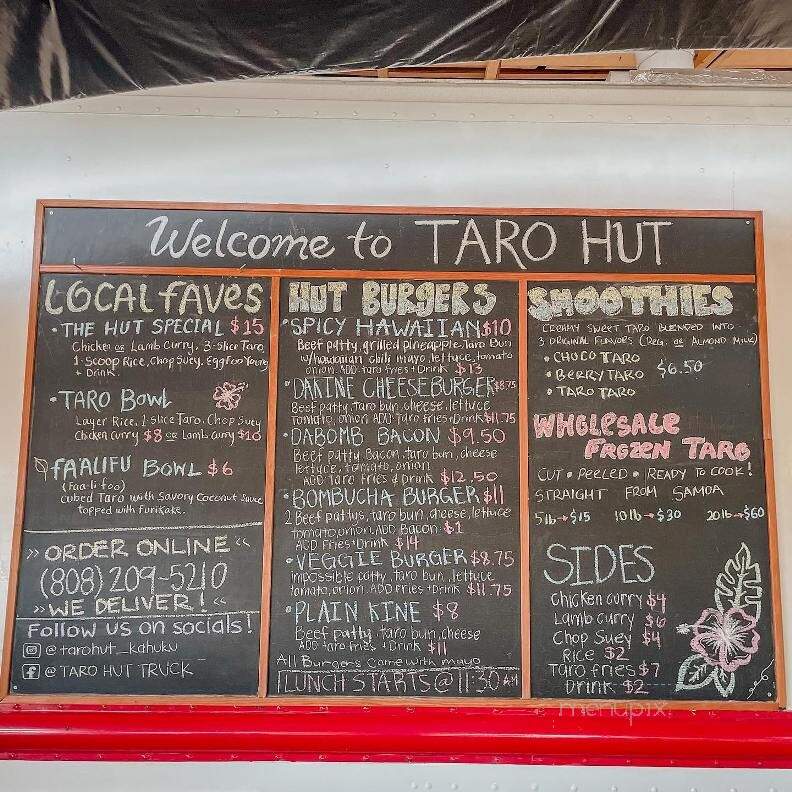 Welcome to TARO HUT
LOCAL FAVES
• THE HUT SPECIAL $15
Chicken or Lamb Curry, 3-Slice Taro,
1-Scoop Rice, Chop Suey, Egg Foo Young
+ Drink.
• TARO BOWL
Layer Rice, 2-slice Taro, Chop Suey
Chicken curry $8 or Lamb curry $10
FAALIFU BOWL $6
(Faa-li foo)
cubed Taro with Savory Coconut Sauce
topped with Furikake.
>> ORDER ONLINE <<
(808) 209-5210
>> WE DELIVER! <<
Follow us on socials!
@tarohut_kahuku
@ TARO HUT TRUCK
HUT BURGERS
• SPICY HAWAIIAN $10
Beef patty, grilled pineapple, Taro Bun
w/hawaiian chili mayo, lettuce, tomato
onion ADD taro fries + Drink $13
• DAKINE CHEESEBURGER $8.75
Beef patty, Taro bun, cheese, lettuce
Tomato, onion ADD Taro fries + Drink $11.75
• DABOMB BACON $9.50
Beef patty Bacon, taro bun, cheese
lettuce, tomato, onion
ADD Taro Fries & drink $12.50
• BOMBUCHA BURGER $11
2 Beef pattys, taro bun, cheese, lettuce
tomato, onion, ADD Bacon $1
ADD Fries + Drink $14
• VEGGIE BURGER $8.75
impossible patty, taro bun, lettuce
tomato, onion. ADD Fries + drink $11.75
• PLAIN KINE $8
Beef patty, taro bun, cheese
ADD taro fries + Drink $11
All Burgers Came with mayo
LUNCH STARTS @ 11:30 AM
SMOOTHIES
CREAMY SWEET TARO BLENDED INTO
3 ORIGINAL FLAVORS (REG. or ALMOND MILK)
• CHOCO TARO
• BERRY TARO $6.50
• TARO TARO
WHOLESALE
FROZEN TARO
CUT • PEELED • READY TO COOK!
STRAIGHT FROM SAMOA
5lb → $15 10lb → $30 20lb → $60
SIDES
Chicken curry $4
Lamb curry $6
Chop Suey $4
Rice $2
Taro fries $7
Drink $2
menupix